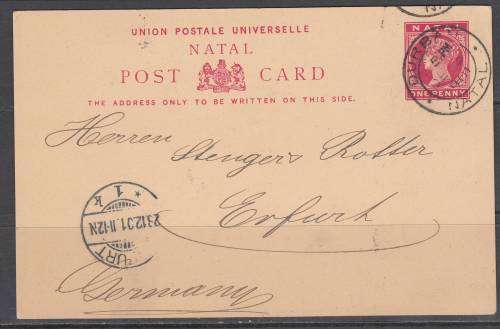 UNION POSTALE UNIVERSELLE
NATAL
POST CARD
THE ADDRESS ONLY TO BE WRITTEN ON THIS SIDE.
NATAL
ONE PENNY
NATAL
Herren
Stenger & Rotter
Erfurt
Germany
* 1 k
23.12.01.11-12N
URT